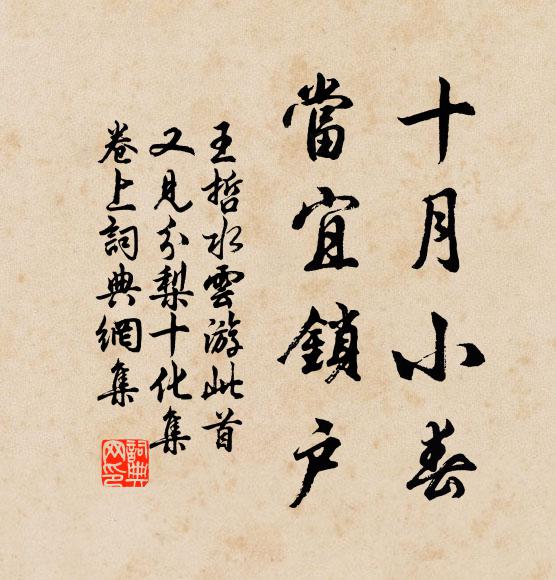 十月小春
當宜鎖户
王哲水雲游此首
又見分梨十化集
卷上詞典網集
詞典網印